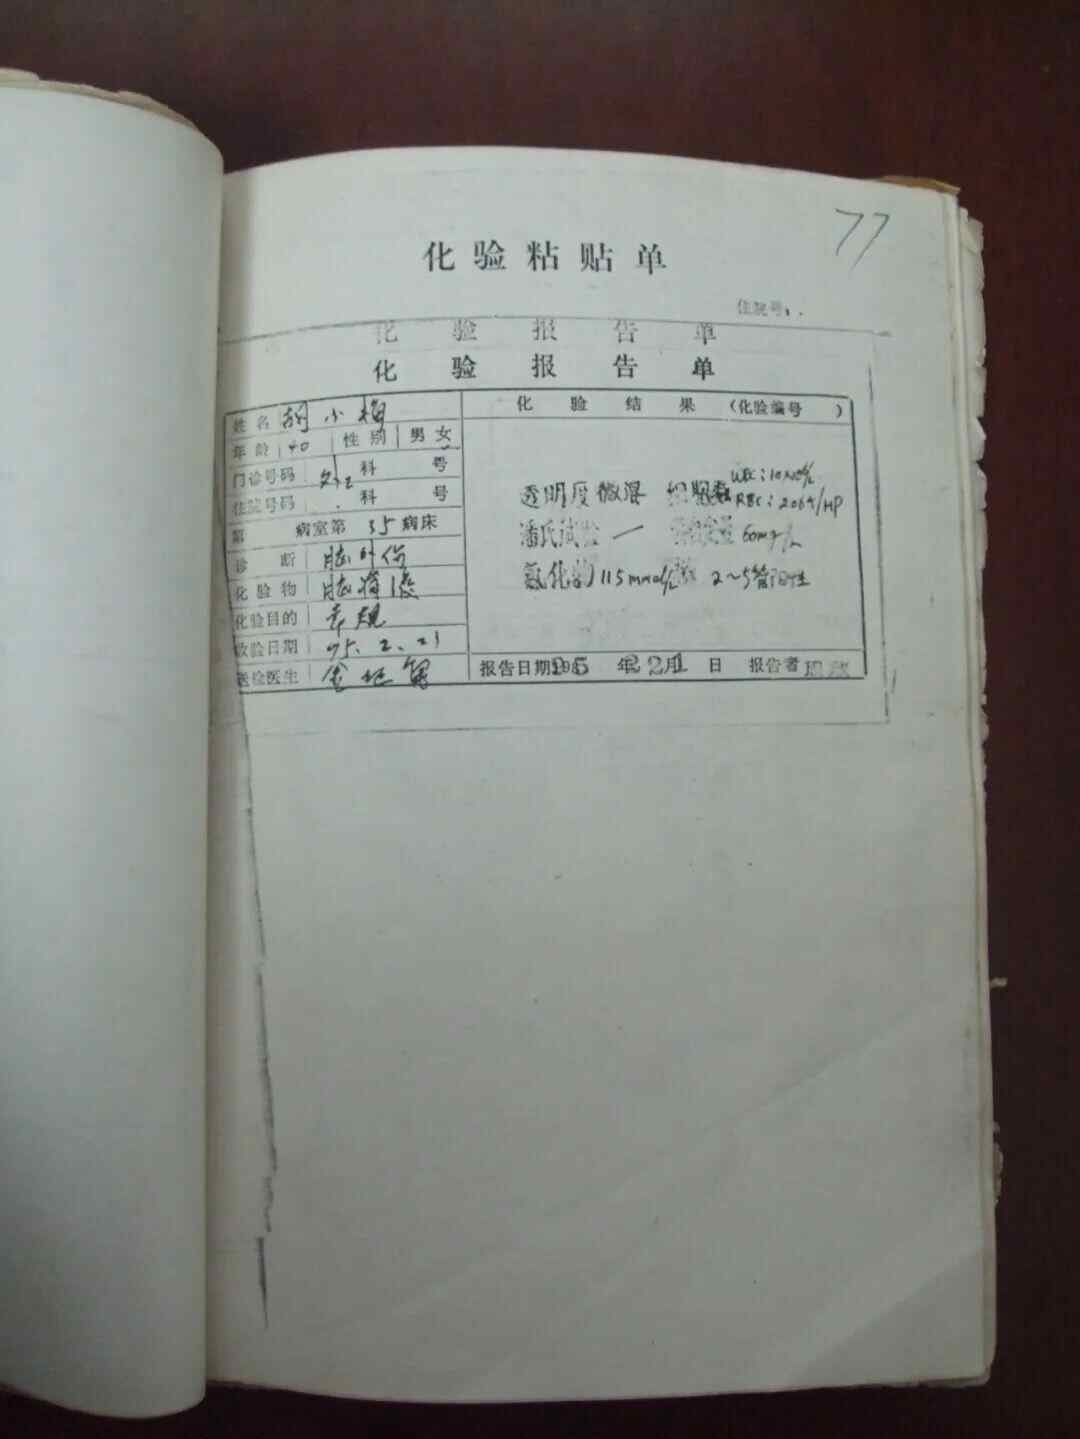 77
化验粘贴单
住院号：
化验报告单
化验报告单
姓名 胡小梅
年龄 40 性别 男 女
门诊号码 外 科 号
住院号码 科 号
第 病室第 35 病床
诊断 脑外伤
化验物 脑脊液
化验目的 常规
收验日期 95.2.21
送验医生
化验结果（化验编号 ）
透明度 微混 细胞数 WBC：10x10⁶/L
RBC：2064/HP
潘氏试验 一 60mg/L
氯化物 115mmol/L 2～5管阳性
报告日期1995年2月21日 报告者